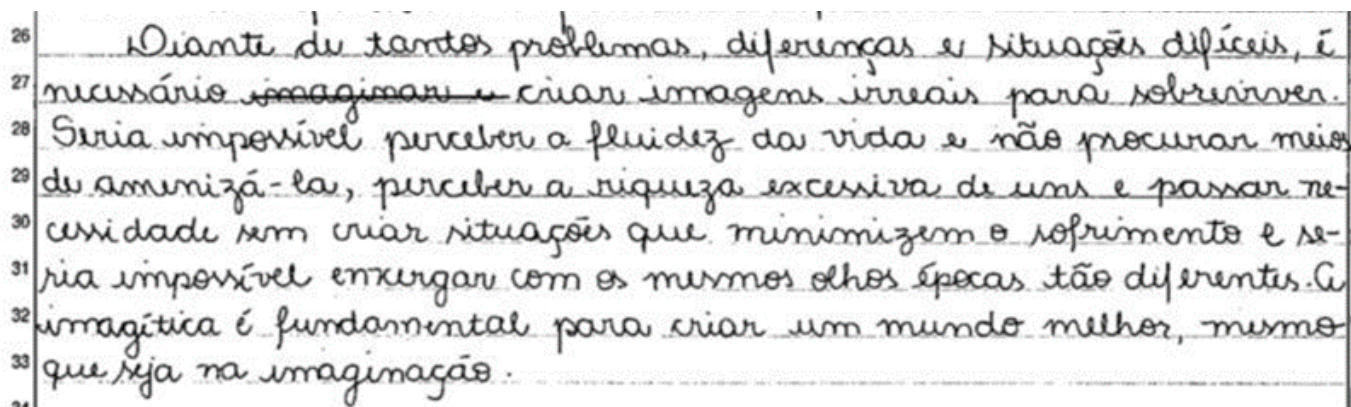 26 Diante de tantos problemas, diferenças e situações difíceis, é
27 necessário imaginar e criar imagens irreais para sobreviver.
28 Seria impossível perceber a fluidez da vida e não procurar meios
29 de amenizá-la, perceber a riqueza excessiva de uns e passar ne-
30 cessidade sem criar situações que minimizem o sofrimento e se-
31 ria impossível enxergar com os mesmos olhos épocas tão diferentes. A
32 imagítica é fundamental para criar um mundo melhor, mesmo
33 que seja na imaginação.